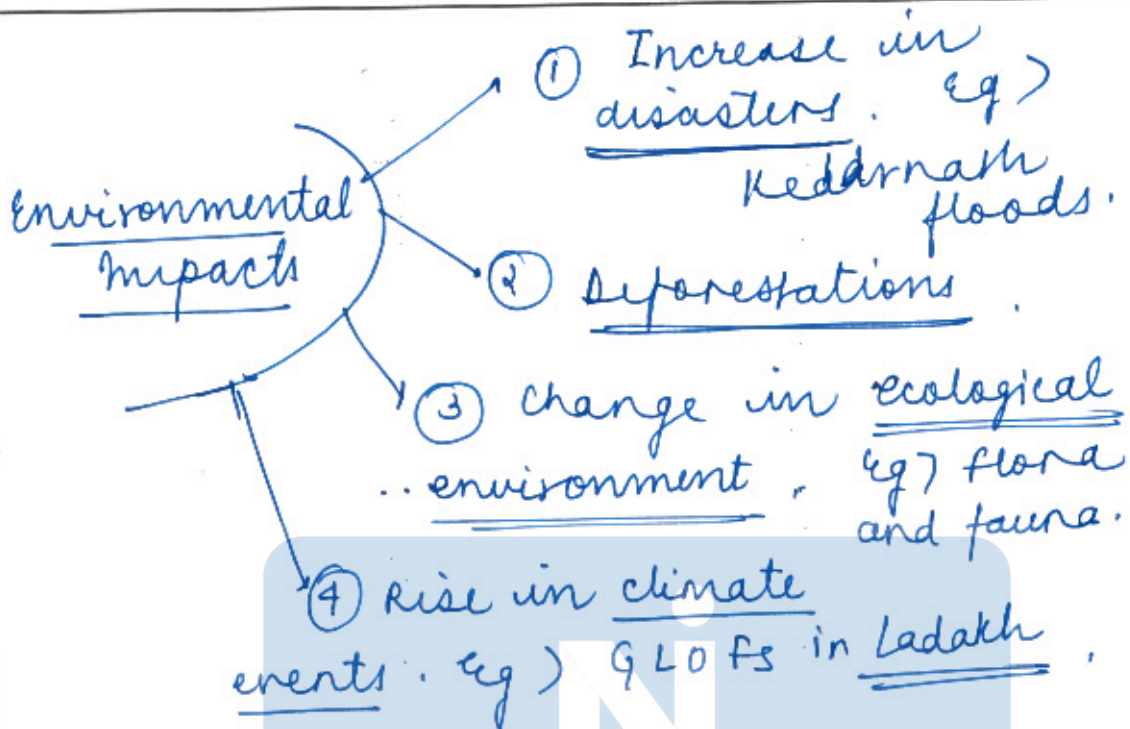 Environmental
Impacts
① Increase in
disasters. Eg>
Kedarnath
floods.
② Deforestations.
③ Change in ecological
environment. Eg> flora
and fauna.
④ Rise in climate
events. Eg> GLOFs in Ladakh.